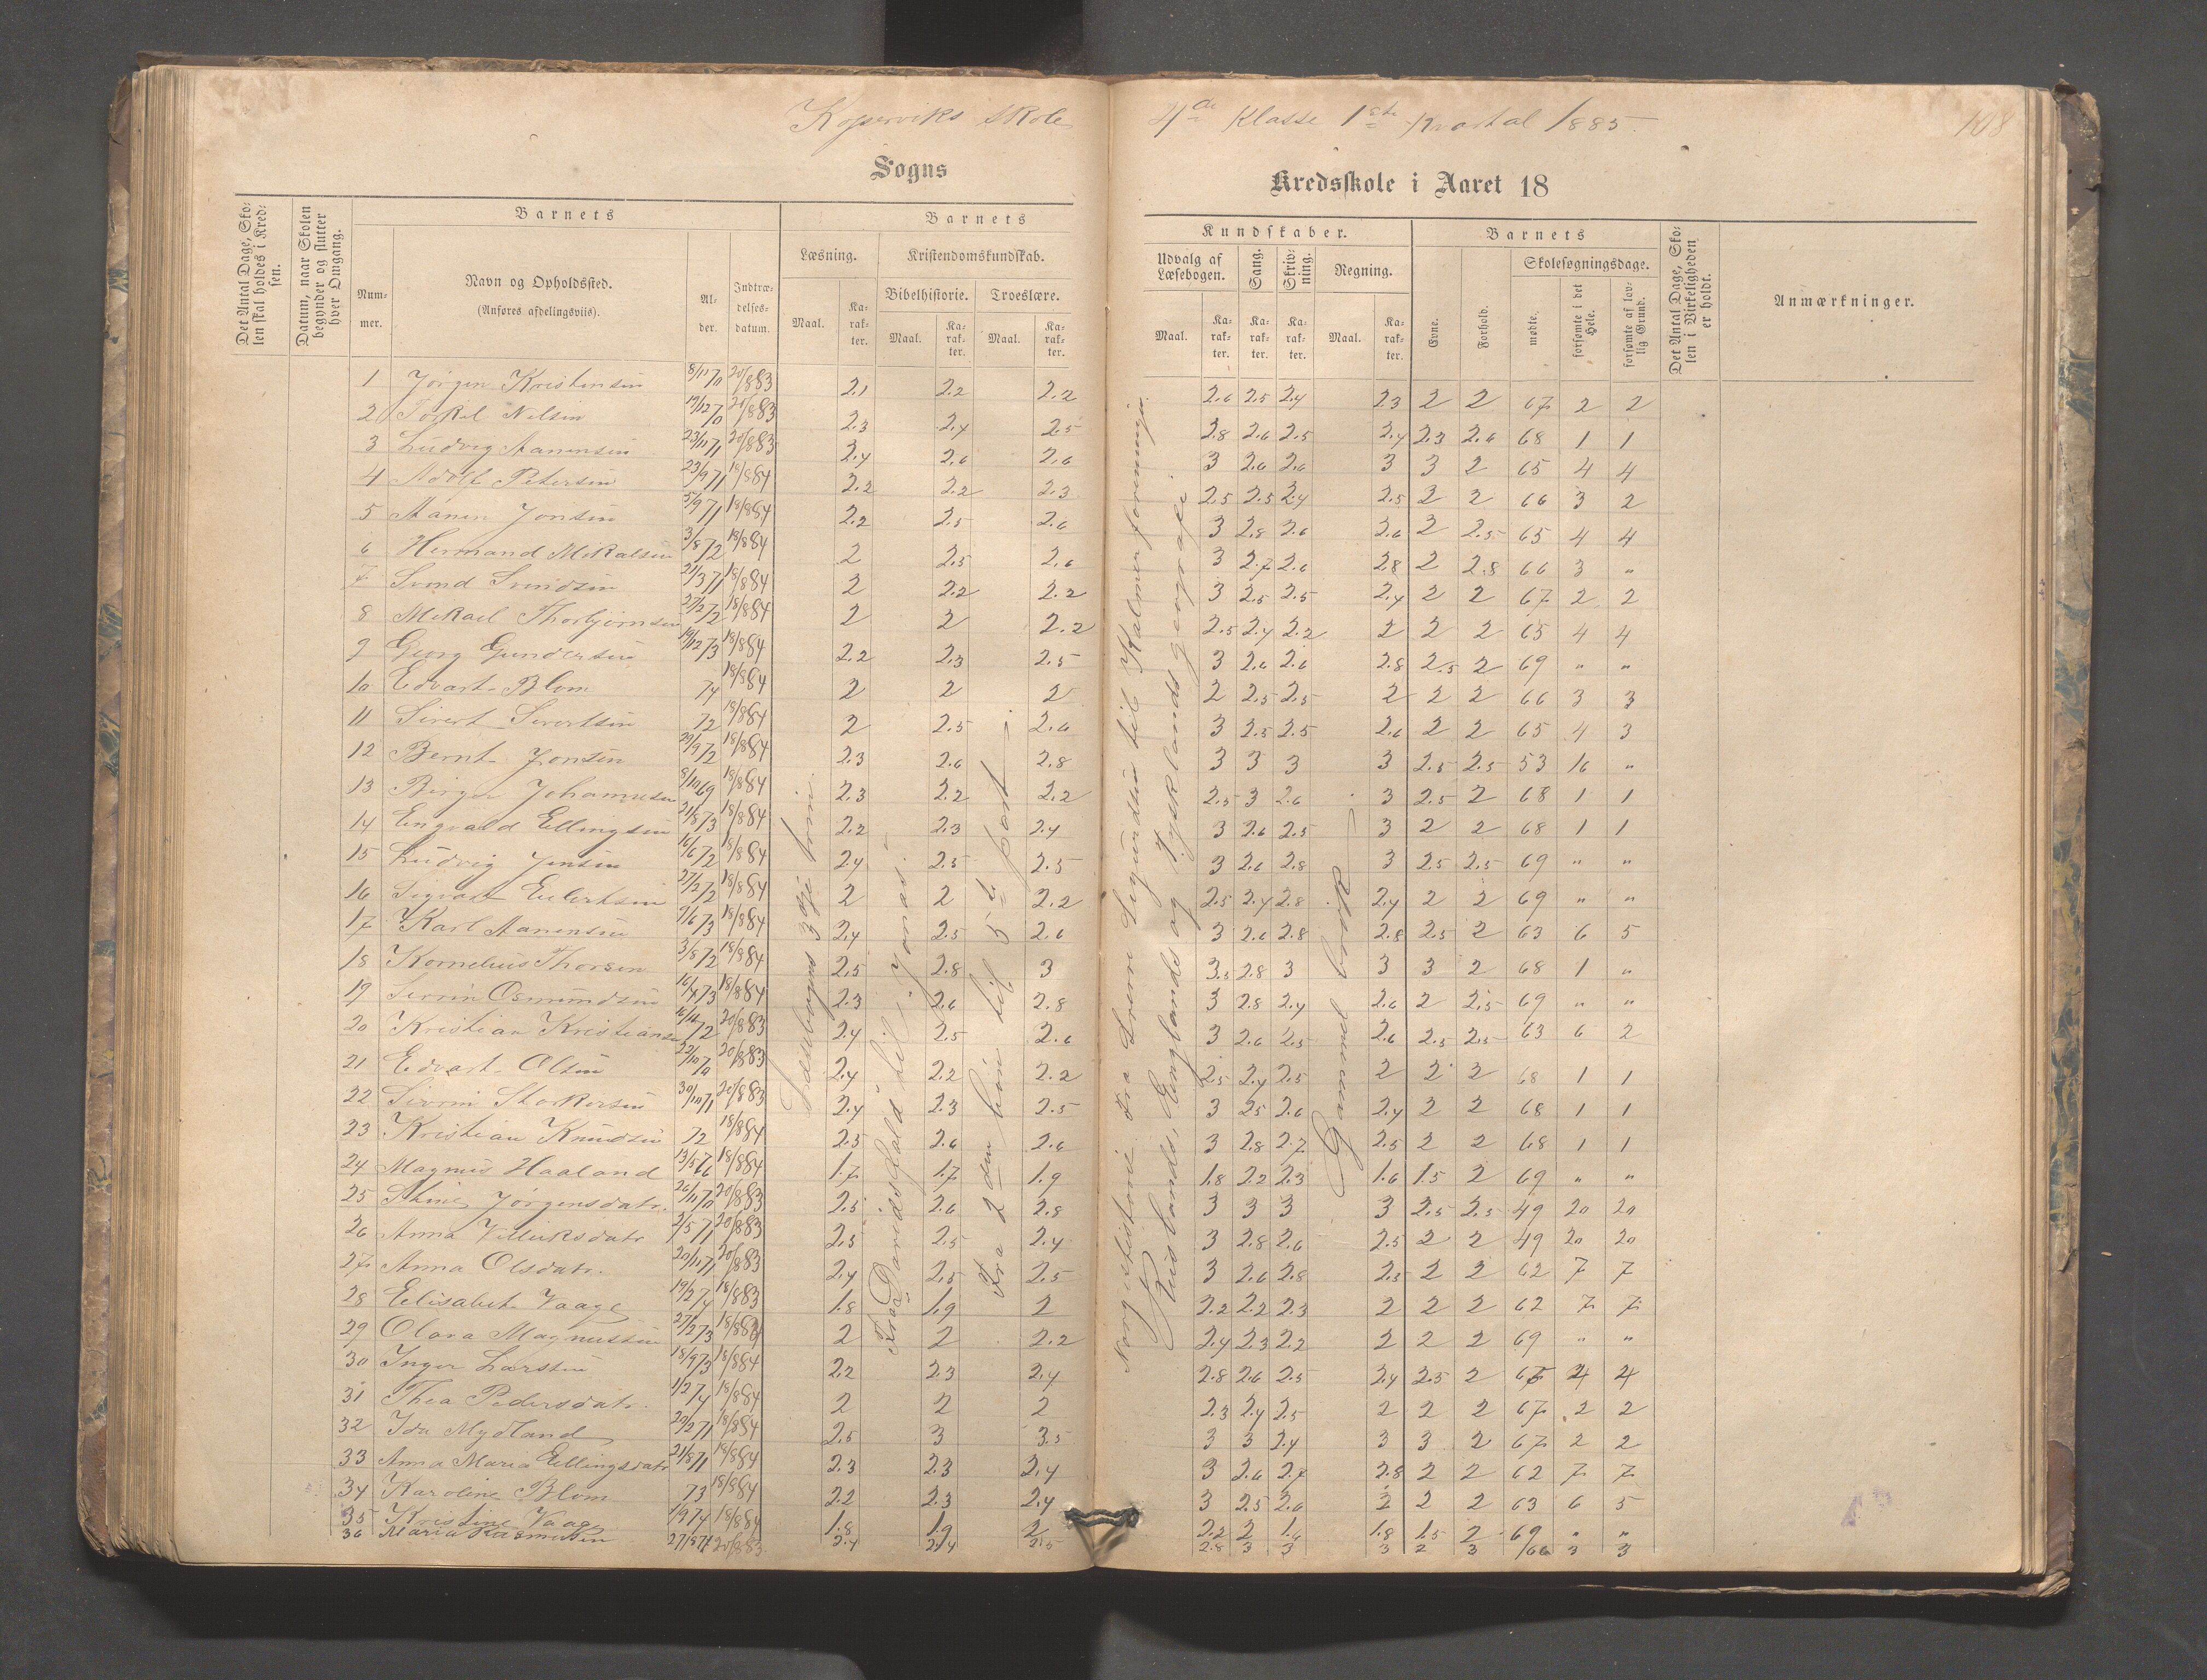 Koperviks Skole 4de Klasse 1ste Kvartal 1885. 108
Sogns Kredsskole i Aaret 18
Det Antal Dage, Sko-
len skal holdes i Kred-
sen.
Datum, naar Skolen
begynder og slutter
hver Omgang.
Barnets
Num-
mer.
Navn og Opholdssted.
(Anføres afdelingsviis).
Al-
der.
Indtræ-
delses-
datum.
Barnets
Læsning.
Maal.
Ka-
rak-
ter.
Kristendomskundskab.
Bibelhistorie.
Maal.
Ka-
rak-
ter.
Troeslære.
Maal.
Ka-
rak-
ter.
Kundskaber.
Udvalg af
Læsebogen.
Maal.
Ka-
rak-
ter.
Sang.
Ka-
rak-
ter.
Skriv-
ning.
Ka-
rak-
ter.
Regning.
Maal.
Ka-
rak-
ter.
Barnets
Evne.
Forhold.
Skolesøgningsdage.
mødte.
forsømte i det
Hele.
forsømte af lov-
lig Grund.
Det Antal Dage, Sko-
len i Virkeligheden
er holdt.
Anmærkninger.
1 Jørgen Kristensen 8/11 70 20/8 83 2.1 2.2 2.2 2.6 2.5 2.4 2.3 2 2 67 2 2
2 Torkel Nelsen 19/12 70 20/8 83 2.3 2.4 2.5 2.8 2.6 2.5 2.4 2.3 2.6 68 1 1
3 Ludvig Aanensen 23/11 71 20/8 83 2.4 2.6 2.6 3 2.6 2.6 3 3 2 65 4 4
4 Adolf Petersen 23/9 71 18/8 84 2.2 2.2 2.3 2.5 2.5 2.4 2.5 2 2 66 3 2
5 Aanen Jonsen 5/9 71 18/8 84 2.2 2.5 2.6 3 2.8 2.6 2.6 2 2.5 65 4 4
6 Hermand Mikalsen 3/8 72 18/8 84 2 2.5 2.6 3 2.7 2.6 2.8 2 2.8 66 3 "
7 Svend Svendsen 21/3 71 18/8 84 2 2.2 2.2 3 2.5 2.5 2.4 2 2 67 2 2
8 Mikael Thorbjørnsen 27/2 72 18/8 84 2 2 2.2 2.5 2.4 2.2 2 2 2 65 4 4
9 Georg Gundersen 19/12 73 18/8 84 2.2 2.3 2.5 3 2.6 2.6 2.8 2.5 2 69 " "
10 Edvart Blom 74 18/8 84 2 2 2 2 2.5 2.5 2 2 2 66 3 3
11 Sivert Sivertsen 72 18/8 84 2 2.5 2.6 3 2.5 2.5 2.6 2 2 65 4 3
12 Bernt Jonsen 29/9 72 18/8 84 2.3 2.6 2.8 3 3 3 3 2.5 2.5 53 16 "
13 Birger Johannesen 8/10 69 18/8 84 2.3 2.2 2.2 2.5 3 2.6 3 2.5 2 68 1 1
14 Engvald Ellingsen 21/8 73 18/8 84 2.2 2.3 2.4 3 2.6 2.5 3 2 2 68 1 1
15 Ludvig Jensen 16/6 72 18/8 84 2.4 2.5 2.5 3 2.6 2.8 3 2.5 2.5 69 " "
16 Sigvart Eilertsen 27/2 72 18/8 84 2 2 2.2 2.5 2.4 2.8 2.4 2 2 69 " "
17 Karl Aanensen 7/6 73 18/8 84 2.4 2.5 2.6 3 2.6 2.8 2.8 2.5 2 63 6 5
18 Kornelius Thorsen 3/8 72 18/8 84 2.5 2.8 3 3.5 2.8 3 3 3 2 68 1 "
19 Osmundsen 16/4 73 18/8 84 2.3 2.6 2.8 3 2.8 2.4 2.6 2 2.5 69 " "
20 Kristian Kristiansen 72 20/8 83 2.4 2.5 2.6 3 2.6 2.5 2.6 2.5 2.5 63 6 2
21 Edvart Olsen 22/10 70 20/8 83 2.4 2.2 2.2 2.5 2.4 2.5 2 2 2 68 1 1
22 Storkersen 30/10 71 20/8 83 2.4 2.3 2.5 3 2.5 2.6 2.4 2 2 68 1 1
23 Kristian Knudsen 72 18/8 84 2.5 2.6 2.6 3 2.8 2.7 2.5 2 2 68 1 1
24 Magnus Haaland 13/5 76 18/8 84 1.7 1.7 1.9 1.8 2.2 2.3 1.6 1.5 2 69 " "
25 Stine Jørgensdatr. 26/11 70 20/8 83 2.5 2.6 2.8 3 3 3 3 2.5 2.5 49 20 20
26 Anna Villiksdatr 2/5 71 20/8 83 2.5 2.5 2.4 3 2.8 2.6 2.5 2 2 49 20 20
27 Anna Olsdatr. 20/11 71 20/8 83 2.4 2.5 2.5 3 2.6 2.8 2.3 2 2 62 7 7
28 Elisabet Vaage 19/2 74 18/8 83 1.8 1.9 2 2.2 2.2 2.3 2 2 2 62 7 7
29 Olava Magnussen 27/2 73 18/8 84 2 2 2.2 2.4 2.3 2.2 2 2 2 69 " "
30 Inger Larsen 18/9 73 18/8 84 2.2 2.3 2.4 2.8 2.6 2.5 2.4 2.5 2 65 4 4
31 Thea Pedersdatr. 1/2 74 18/8 84 2 2 2 2.3 2.4 2.5 2 2 2 67 2 2
32 Ida Mydland 20/2 71 18/8 84 2.5 3 3.5 3 3 2.4 3 3 2 67 2 2
33 Anna Maria Ellingsdatr 21/8 71 18/8 84 2.3 2.3 2.4 3 2.6 2.7 2.8 2 2 62 7 7
34 Karoline Blom 73 18/8 84 2.2 2.3 2.4 3 2.5 2.6 2 2 2 63 6 5
35 Kristine Vaage 1/9 74 18/8 84 1.8 1.9 2 2.2 2 1.6 1.8 1.5 2 69 " "
36 Maria Rasmussen 27/5 71 20/8 83 2.4 2.4 2.5 2.8 3 3 3 2 3 66 3 3
Læsebogens 3dje trin.
Fra Davids fald til Jonas.
Fra 2den bøn til 5te part.
Norgeshistorie fra Svein Sigurdsen til Kalmarforeningen.
Ruslands, Englands og Tysklands geografi.
Gammel brøk